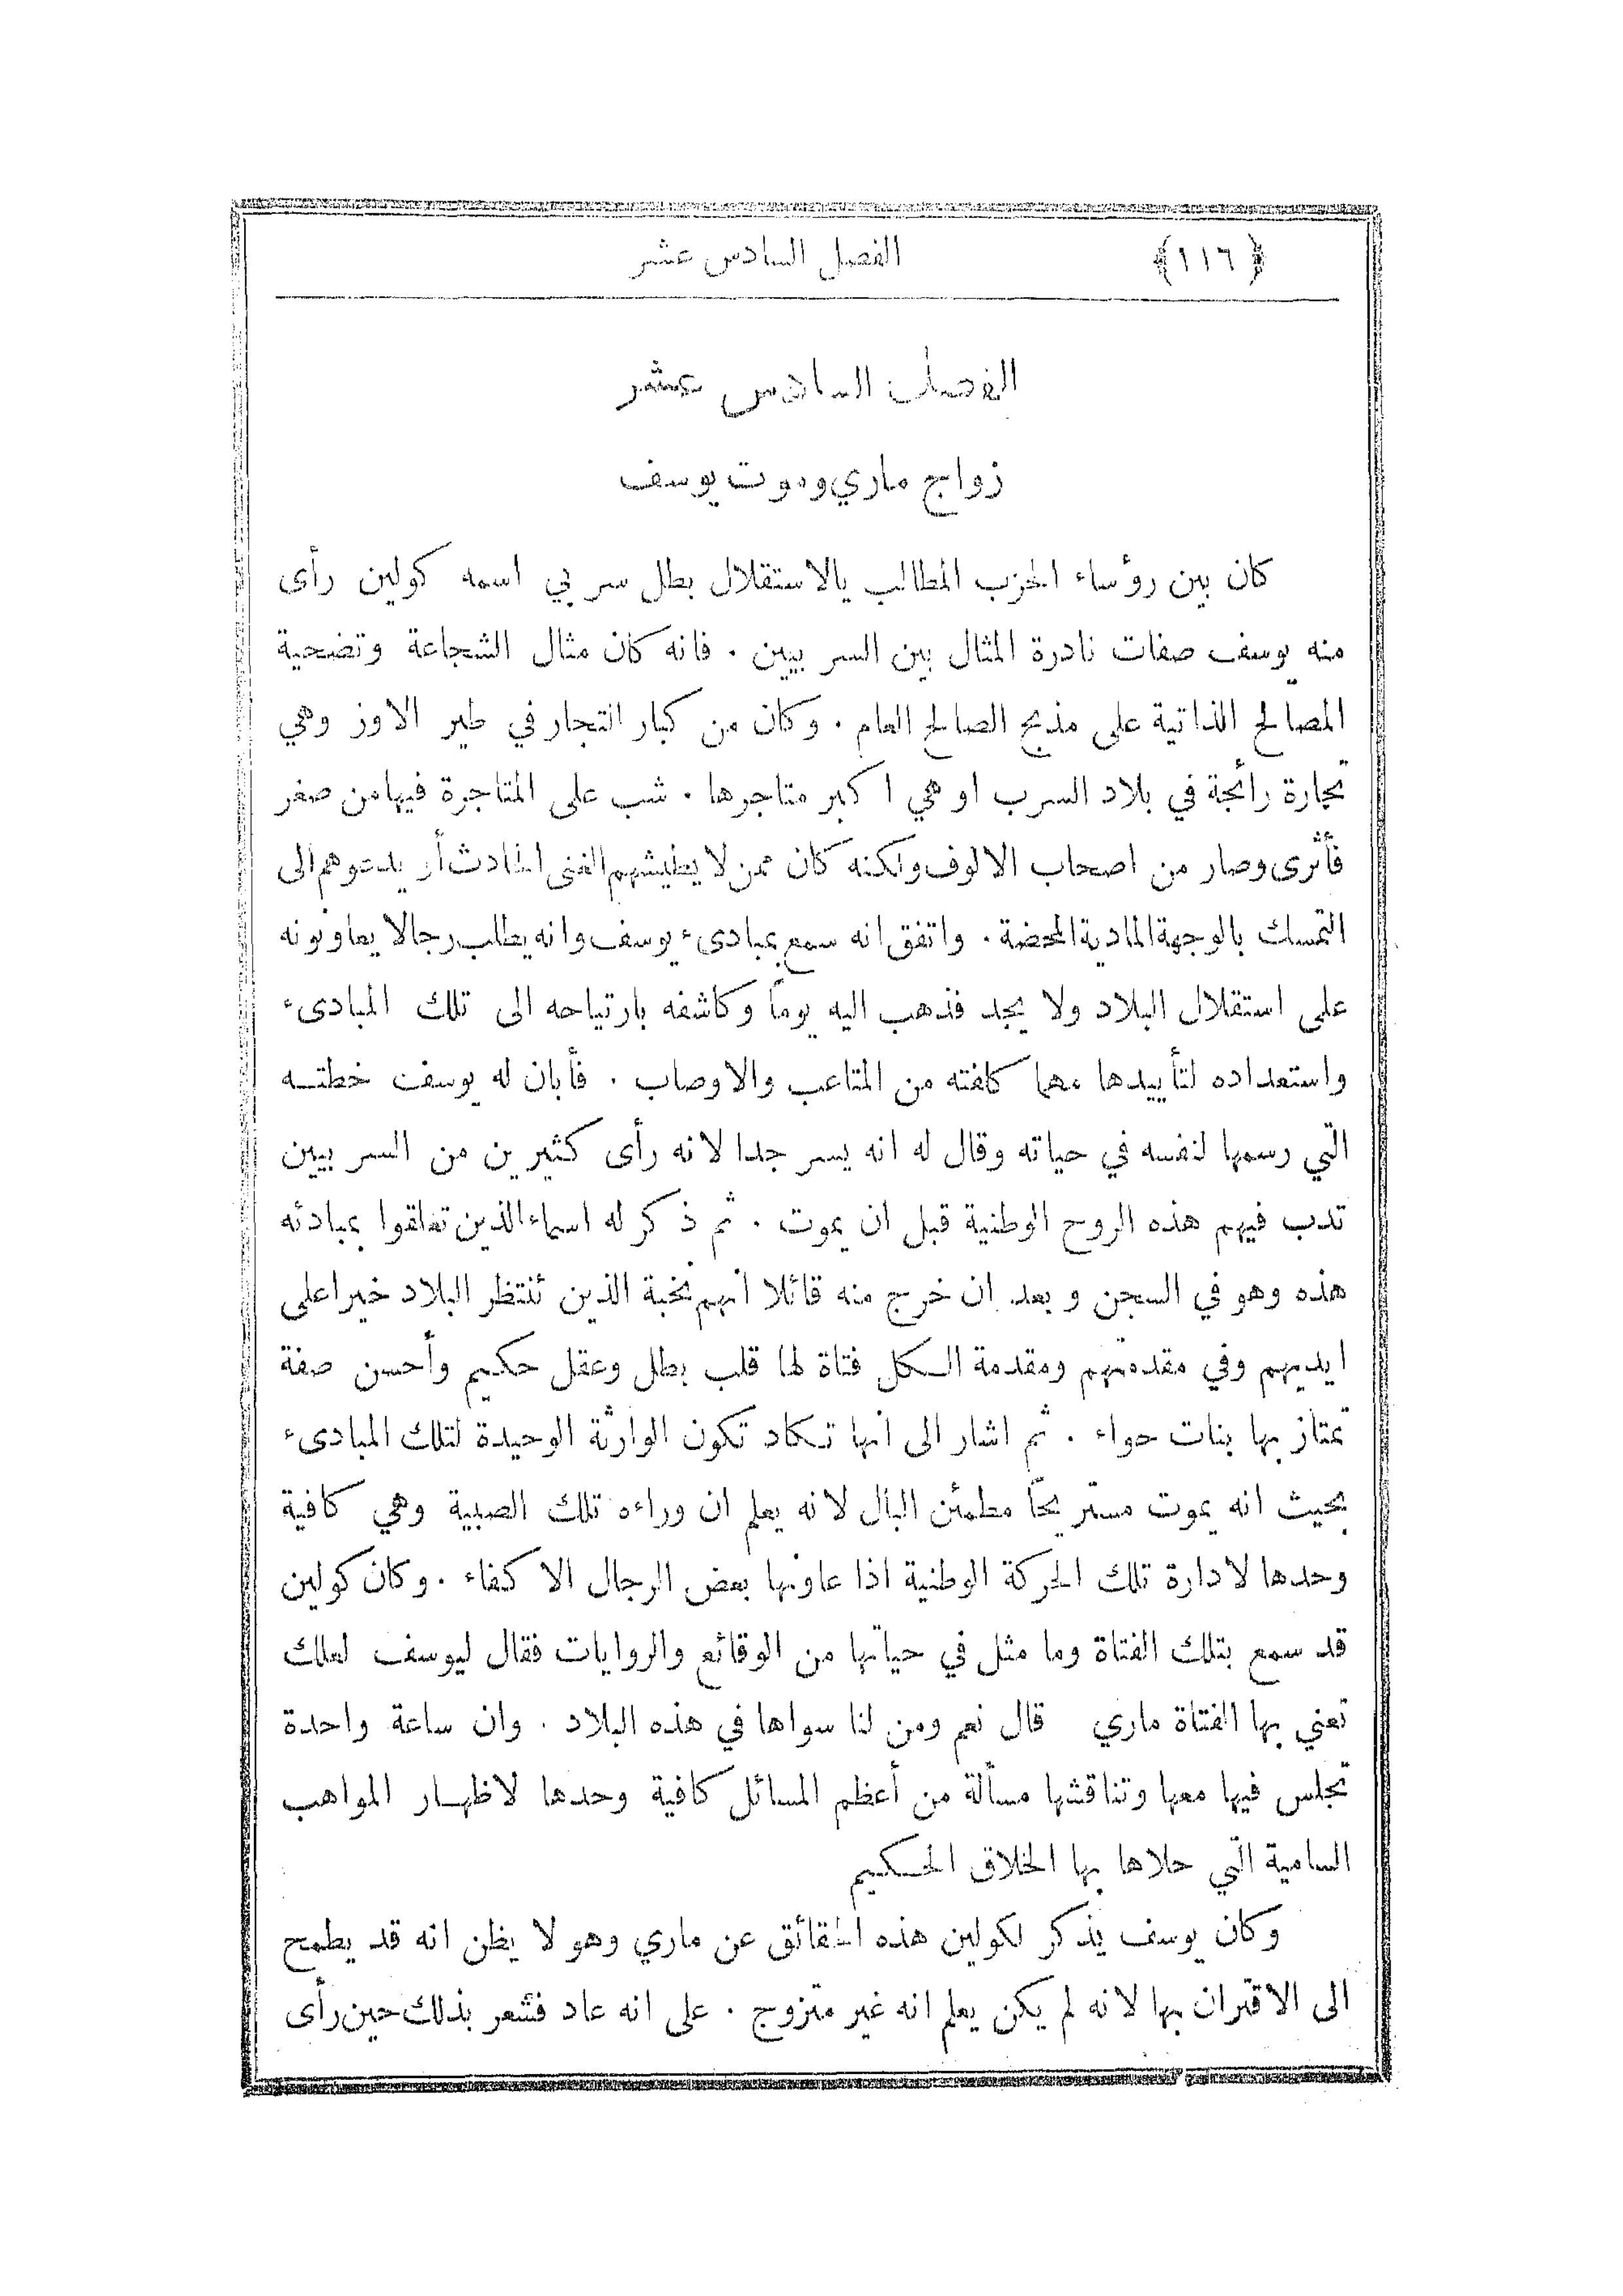 ﴿١١٦﴾ الفصل السادس عشر
الفصل السادس عشر
زواج ماري وموت يوسف
كان بين رؤساء الحزب المطالب بالاستقلال بطل سربي اسمه كولين رأى
منه يوسف صفات نادرة المثال بين السربيين . فانه كان مثال الشجاعة وتضحية
المصالح الذاتية على مذبح الصالح العام . وكان من كبار التجار في طير الاوز وهي
تجارة رائجة في بلاد السرب او هي اكبر متاجرها . شب على المتاجرة فيها من صغر
فأثرى وصار من اصحاب الالوف ولكنه كان ممن لا يطيشهم الغنى الحادث أو يدعوهم الى
التمسك بالوجهة المادية المحضة . واتفق انه سمع بمبادىء يوسف وانه يطلب رجالا يعاونونه
على استقلال البلاد ولا يجد فذهب اليه يوماً وكاشفه بارتياحه الى تلك المبادىء
واستعداده لتأييدها مهما كلفته من المتاعب والاوصاب . فأبان له يوسف خطته
التي رسمها لنفسه في حياته وقال له انه يسر جدا لانه رأى كثيرين من السربيين
تدب فيهم هذه الروح الوطنية قبل ان يموت . ثم ذكر له اسماء الذين تعلقوا بمبادئه
هذه وهو في السجن وبعد ان خرج منه قائلا انهم نخبة الذين تنتظر البلاد خيرا على
ايديهم وفي مقدمتهم ومقدمة الكل فتاة لها قلب بطل وعقل حكيم وأحسن صفة
تمتاز بها بنات حواء . ثم اشار الى انها تكاد تكون الوارثة الوحيدة لتلك المبادىء
بحيث انه يموت مستريحاً مطمئن البال لانه يعلم ان وراءه تلك الصبية وهي كافية
وحدها لادارة تلك الحركة الوطنية اذا عاونها بعض الرجال الاكفاء . وكان كولين
قد سمع بتلك الفتاة وما مثل في حياتها من الوقائع والروايات فقال ليوسف لعلك
تعني بها الفتاة ماري قال نعم ومن لنا سواها في هذه البلاد . وان ساعة واحدة
تجلس فيها معها وتناقشها مسألة من أعظم المسائل كافية وحدها لاظهار المواهب
السامية التي حلاها بها الخلاق الحكيم
وكان يوسف يذكر لكولين هذه الحقائق عن ماري وهو لا يظن انه قد يطمح
الى الاقتران بها لانه لم يكن يعلم انه غير متزوج . على انه عاد فشعر بذلك حين رأى